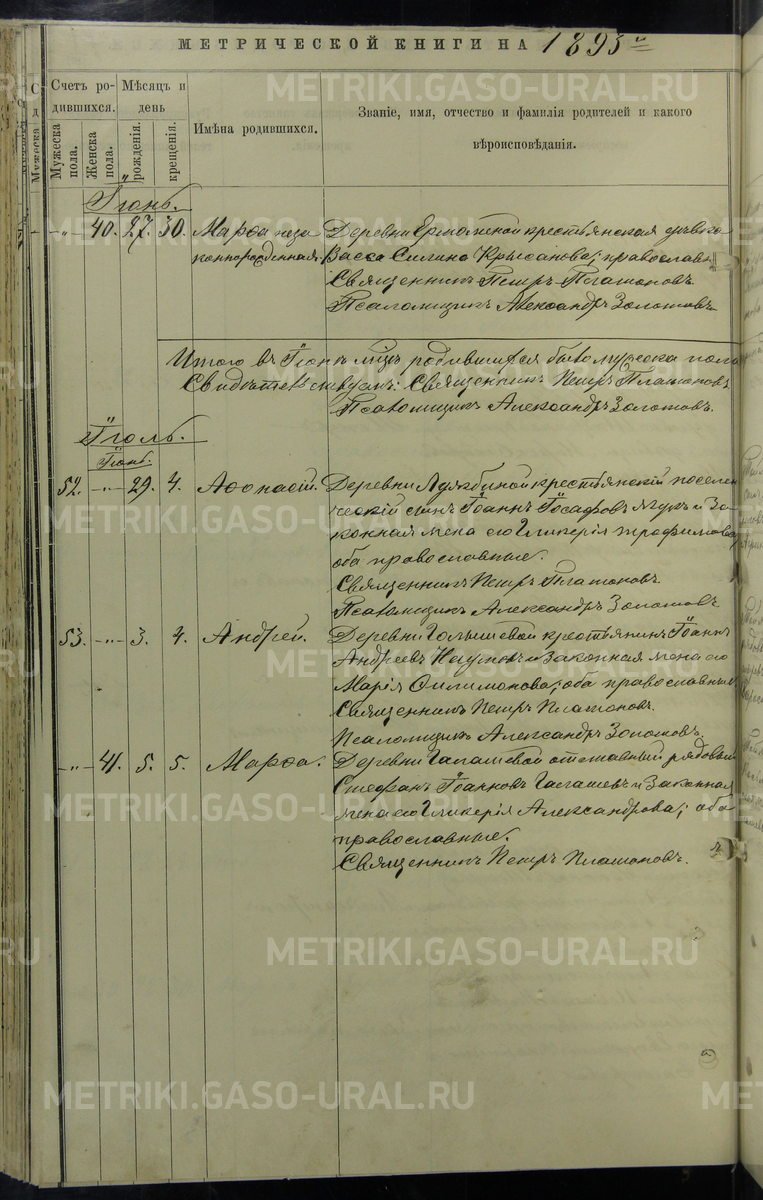 МЕТРИЧЕСКОЙ КНИГИ НА 1893
Счетъ ро-
дившихся.
Мѣсяцъ и
день
Мужеска
пола.
Женска
пола.
рожденія.
крещенія.
Имѣна родившихся.
Званіе, имя, отчество и фамилія родителей и какого
вѣроисповѣданія.
Іюнь.
-"- 40. 27. 30. Марѳа неза
коннорожденная.
Деревни крестьянская дѣвка
Васса Силина православн
Священникъ Петръ Платоновъ
Псаломщикъ Александръ Золотовъ
Итого въ Іюнѣ родившихся было мужеска пола
Священникъ Петръ Платоновъ
Псаломщикъ Александръ Золотовъ.
Іюль.
Іюнь.
52. -"- 29. 4. Аѳонасій.
Деревни крестьянскій
сынъ Іоаннъ Іосафовъ и за-
конная жена его Гликерія Трофимова
оба православные.
Священникъ Петръ Платоновъ
Псаломщикъ Александръ Золотовъ
53. -"- 3. 4. Андрей.
Деревни Голышевой крестьянинъ Іоаннъ
Андреевъ Наумовъ и законная жена его
Марія оба православные
Священникъ Петръ Платоновъ.
Псаломщикъ Александръ Золотовъ.
-"- 41. 5. 5. Марѳа.
Деревни Галашевой отставный рядовый
Стефанъ Іоанновъ Галашевъ и законная
жена его Гликерія Александрова; оба
православные.
Священникъ Петръ Платоновъ.
METRIKI.GASO-URAL.RU